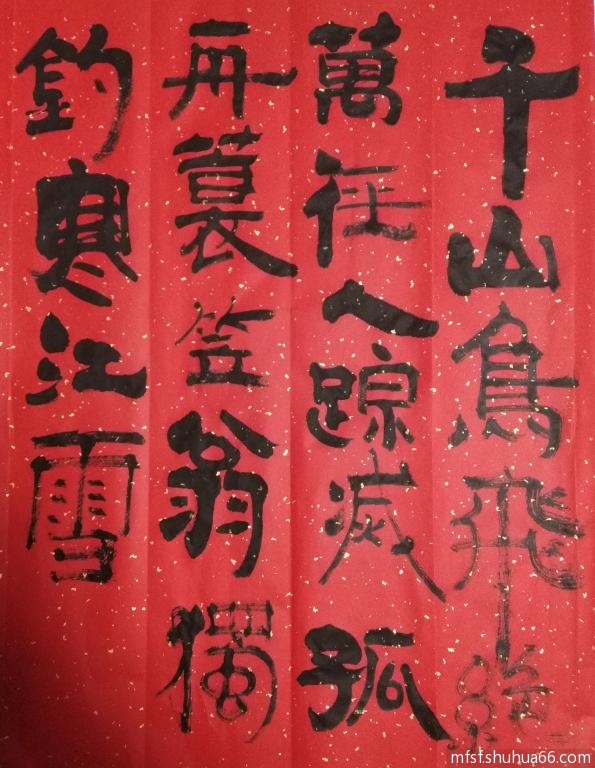 千山鳥飛絶
萬径人踪滅孤
舟蓑笠翁獨
釣寒江雪
mfsfshuhua66.com